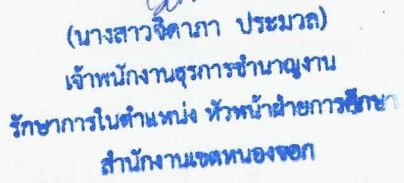 (นางสาวจิดาภา ประมวล)
เจ้าพนักงานธุรการชำนาญงาน
รักษาการในตำแหน่ง หัวหน้าฝ่ายการศึกษา
สำนักงานเขตหนองจอก